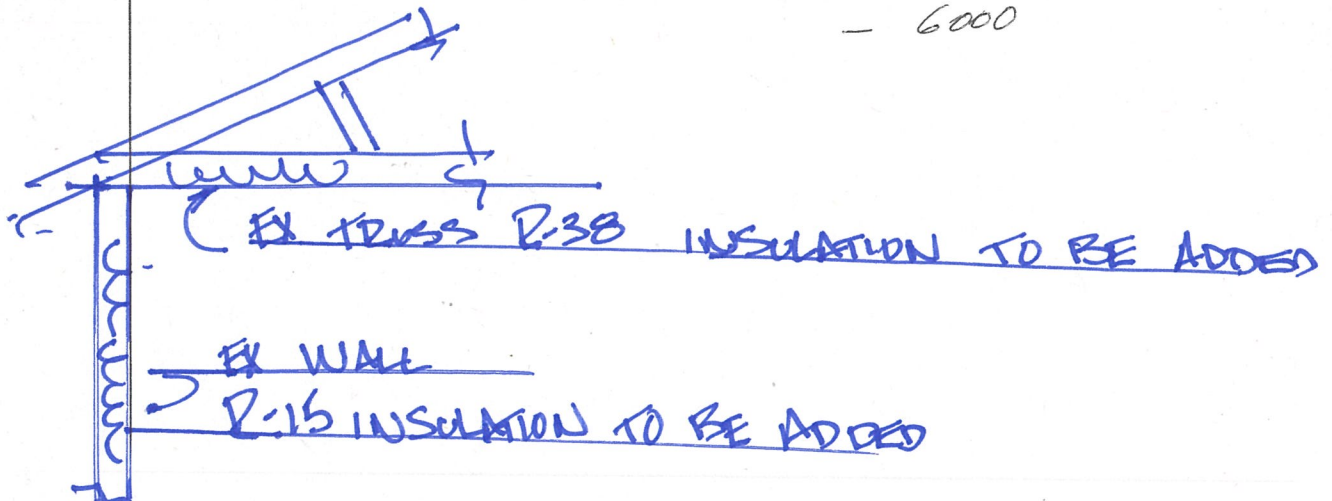 - 6000
EX TRUSS R-38 INSULATION TO BE ADDED
EX WALL
R-15 INSULATION TO BE ADDED